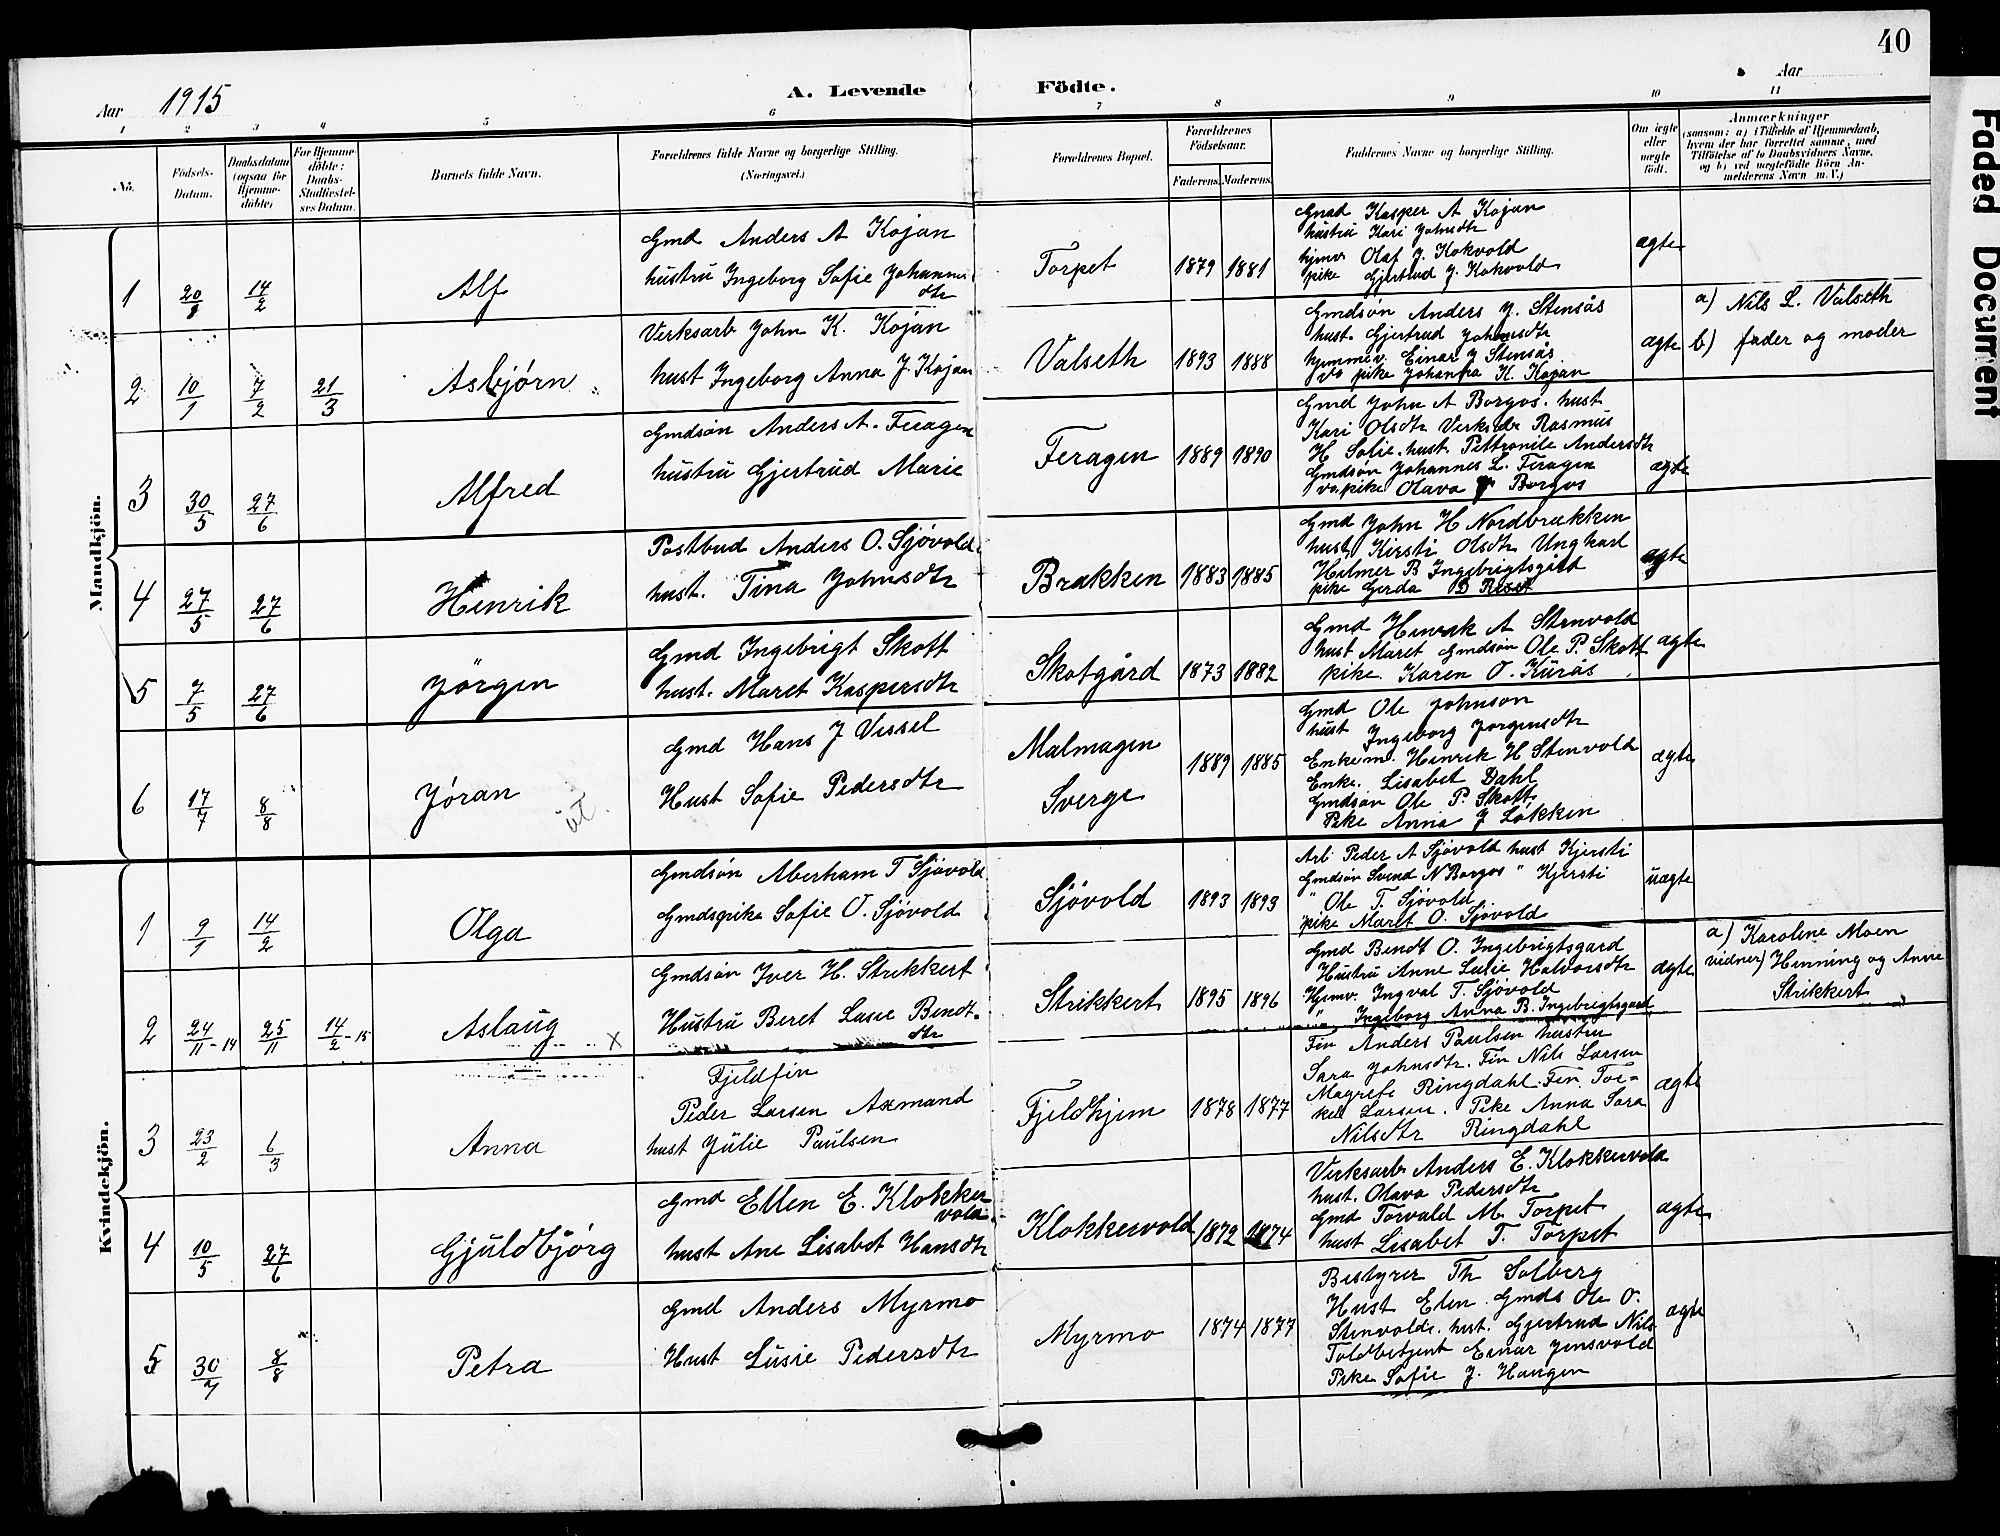 40
Aar 1915
A. Levende Födte.
Aar
1 2 3 4 5 6 7 8 9 10 11
No.
Födsels-Datum.
Daabsdatum (ogsaa for Hjemmedöbte)
For Hjemmedöbte: Daabs-Stadfæstelses Datum.
Barnets fulde Navn.
Forældrenes fulde Navne og borgerlige Stilling.
(Næringsvei.)
Forældrenes Bopæl.
Forældrenes Födselsaar.
Faderens. Moderens.
Faddernes Navne og borgerlige Stilling.
Om ægte eller uægte födt.
Anmærkninger
(saasom: a) i Tilfælde af Hjemmedaab,
hvem der har forrettet samme, med
Tilföielse af to Daabsvidners Navne,
og b) ved uægtefödte Börn Anmelderens Navn m. V.)
Mandkjön.
1 20/1 14/2 Alf
Gmd Anders A Kojan
hustru Ingeborg Sofie Johannes
dtr
Torpet 1879 1881
Gmd Kasper A Kojan
hustru Kari Johnsdtr
hjmv Olaf J. Kokvold
pike Gjertrud J. Kokvold
ægte
2 10/1 7/2 21/3 Asbjørn
Verksarb John K. Kojan
hust Ingeborg Anna J. Kojan
Valseth 1893 1888
Gmdsøn Anders J. Stensås
hust. Gjertrud Johnsdtr
hjemmev. Einar J Stensås
do pike Johanna K. Kojan
ægte
a) Nils L. Valseth
b) fader og moder
3 30/5 27/6 Alfred
Gmdsøn Anders A. Feragen
hustru Gjertrud Marie
Feragen 1889 1890
Gmd John A Borgos. hust
Kari Olsdtr Verksarb Rasmus
H Solie. hust. Pettronile Andersdtr
Gmdsøn Johannes L. Feragen
pike Olava Borgos
ægte
4 27/5 27/6 Henrik
Postbud Anders O. Sjøvold
hust. Tina Johnsdtr
Brækken 1883 1885
Gmd John H Nordbrækken
hust. Kirsti Olsdtr Ungkarl
Hilmer B Ingebrigtsgård
pike Gerda B
ægte
5 7/5 27/6 Jörgen
Gmd Ingebrigt Skott
hust. Maret Kaspersdtr
Skotgård 1873 1882
Gmd Henrik A Stenvold
hust Maret Gmdsøn Ole P. Skott
pike. Karen O. Kurås
ægte
6 17/7 8/8 Jøran
ut.
Gmd Hans J Vessel
Hust Sofie Pedersdtr
Malmagen
Sverge
1889 1885
Gmd Ole Johnson
hust Ingeborg Jorgensdtr
Enkem. Henrik H Stenvold
Enke. Lisabet Dahl
Gmdsøn Ole P. Skott
Pike Anna J Løkken
ægte
Kvindekjön.
1 9/1 14/2 Olga
Gmdsøn Aberham T Sjøvold
Gmdspike Sofie O. Sjövold
Sjövold 1893 1893
Arb Peder A Sjøvold hust Kjersti
Gmdsøn Svend N Borgos " Kjersti
" Ole T. Sjövold
pike Maret O. Sjövold
uægte
2 24/11-14 25/11 14/2-15 Aslaug x
Gmdsøn Iver H. Strikkert
Hustru Beret Lusie Bendt
dtr
Strikkert 1895 1896
Gmd Bendt O. Ingebrigtsgard
Hustru Anne Lusie Halvorsdtr
Hjemv. Ingval T. Sjövold
" Ingeborg Anna B. Ingebrigtsgard
ægte
a) Karoline Moen
vidner) Henning og Anne
Strikkert
3 23/2 6/3 Anna
Fjeldfin
Peder Larsen Axmand
hust Julie Paulsen
Fjeldhjem 1878 1877
Fin Anders Paulsen hustru
Sara Johnsdtr. Fin Nils Larsen
Magrete Ringdahl. Fin Tor-
kel Larsen. Pike Anna Sara
Nilsdtr Ringdahl
ægte
4 10/5 27/6 Gjuldbjørg
Gmd Ellen E. Klokker
vold
hust Ane Lisabet Hansdtr
Klokkervold 1872 1874
Verksarb Anders E. Klokkervold
hust. Olava Pedersdtr
Gmd Torvald M. Torpet
hust Lisabet T. Torpet
ægte
5 30/7 8/8 Petra
Gmd Anders Myrmo
Hust Lusie Pedersdtr
Myrmo 1874 1877
Bestyrer Th Solberg
Hust Elen Gmds Ole O.
Stenvolde. hust. Gjertrud Nils
Toldbetjent Einar Jensvold
Pike Sofie J. Haugen
ægte
Faded Document